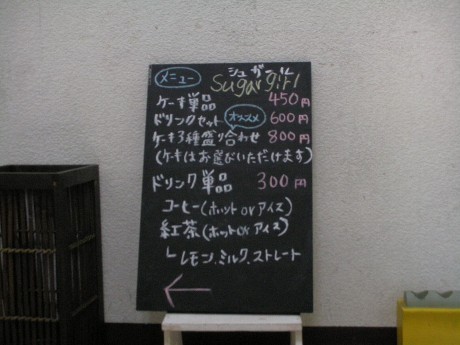 メニュー シュガール
Sugar girl
ケーキ単品 450円
ドリンクセット オススメ 600円
ケーキ3種盛り合わせ 800円
(ケーキはお選びいただけます)
ドリンク単品 300円
コーヒー(ホット or アイス)
紅茶(ホット or アイス)
└レモン、ミルク、ストレート
←